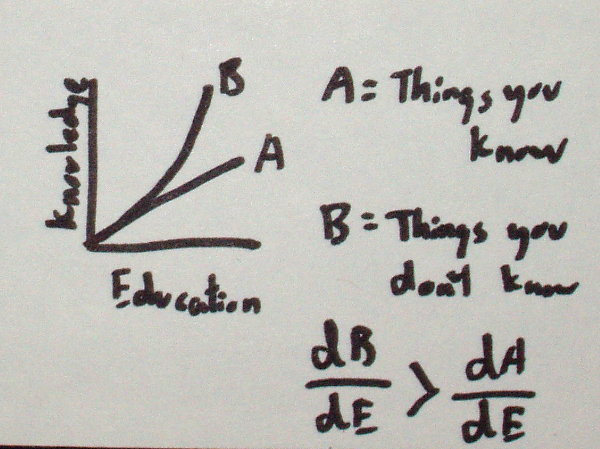 Knowledge
B
A
Education
A = Things you
know
B = Things you
don't know
dB/dE > dA/dE